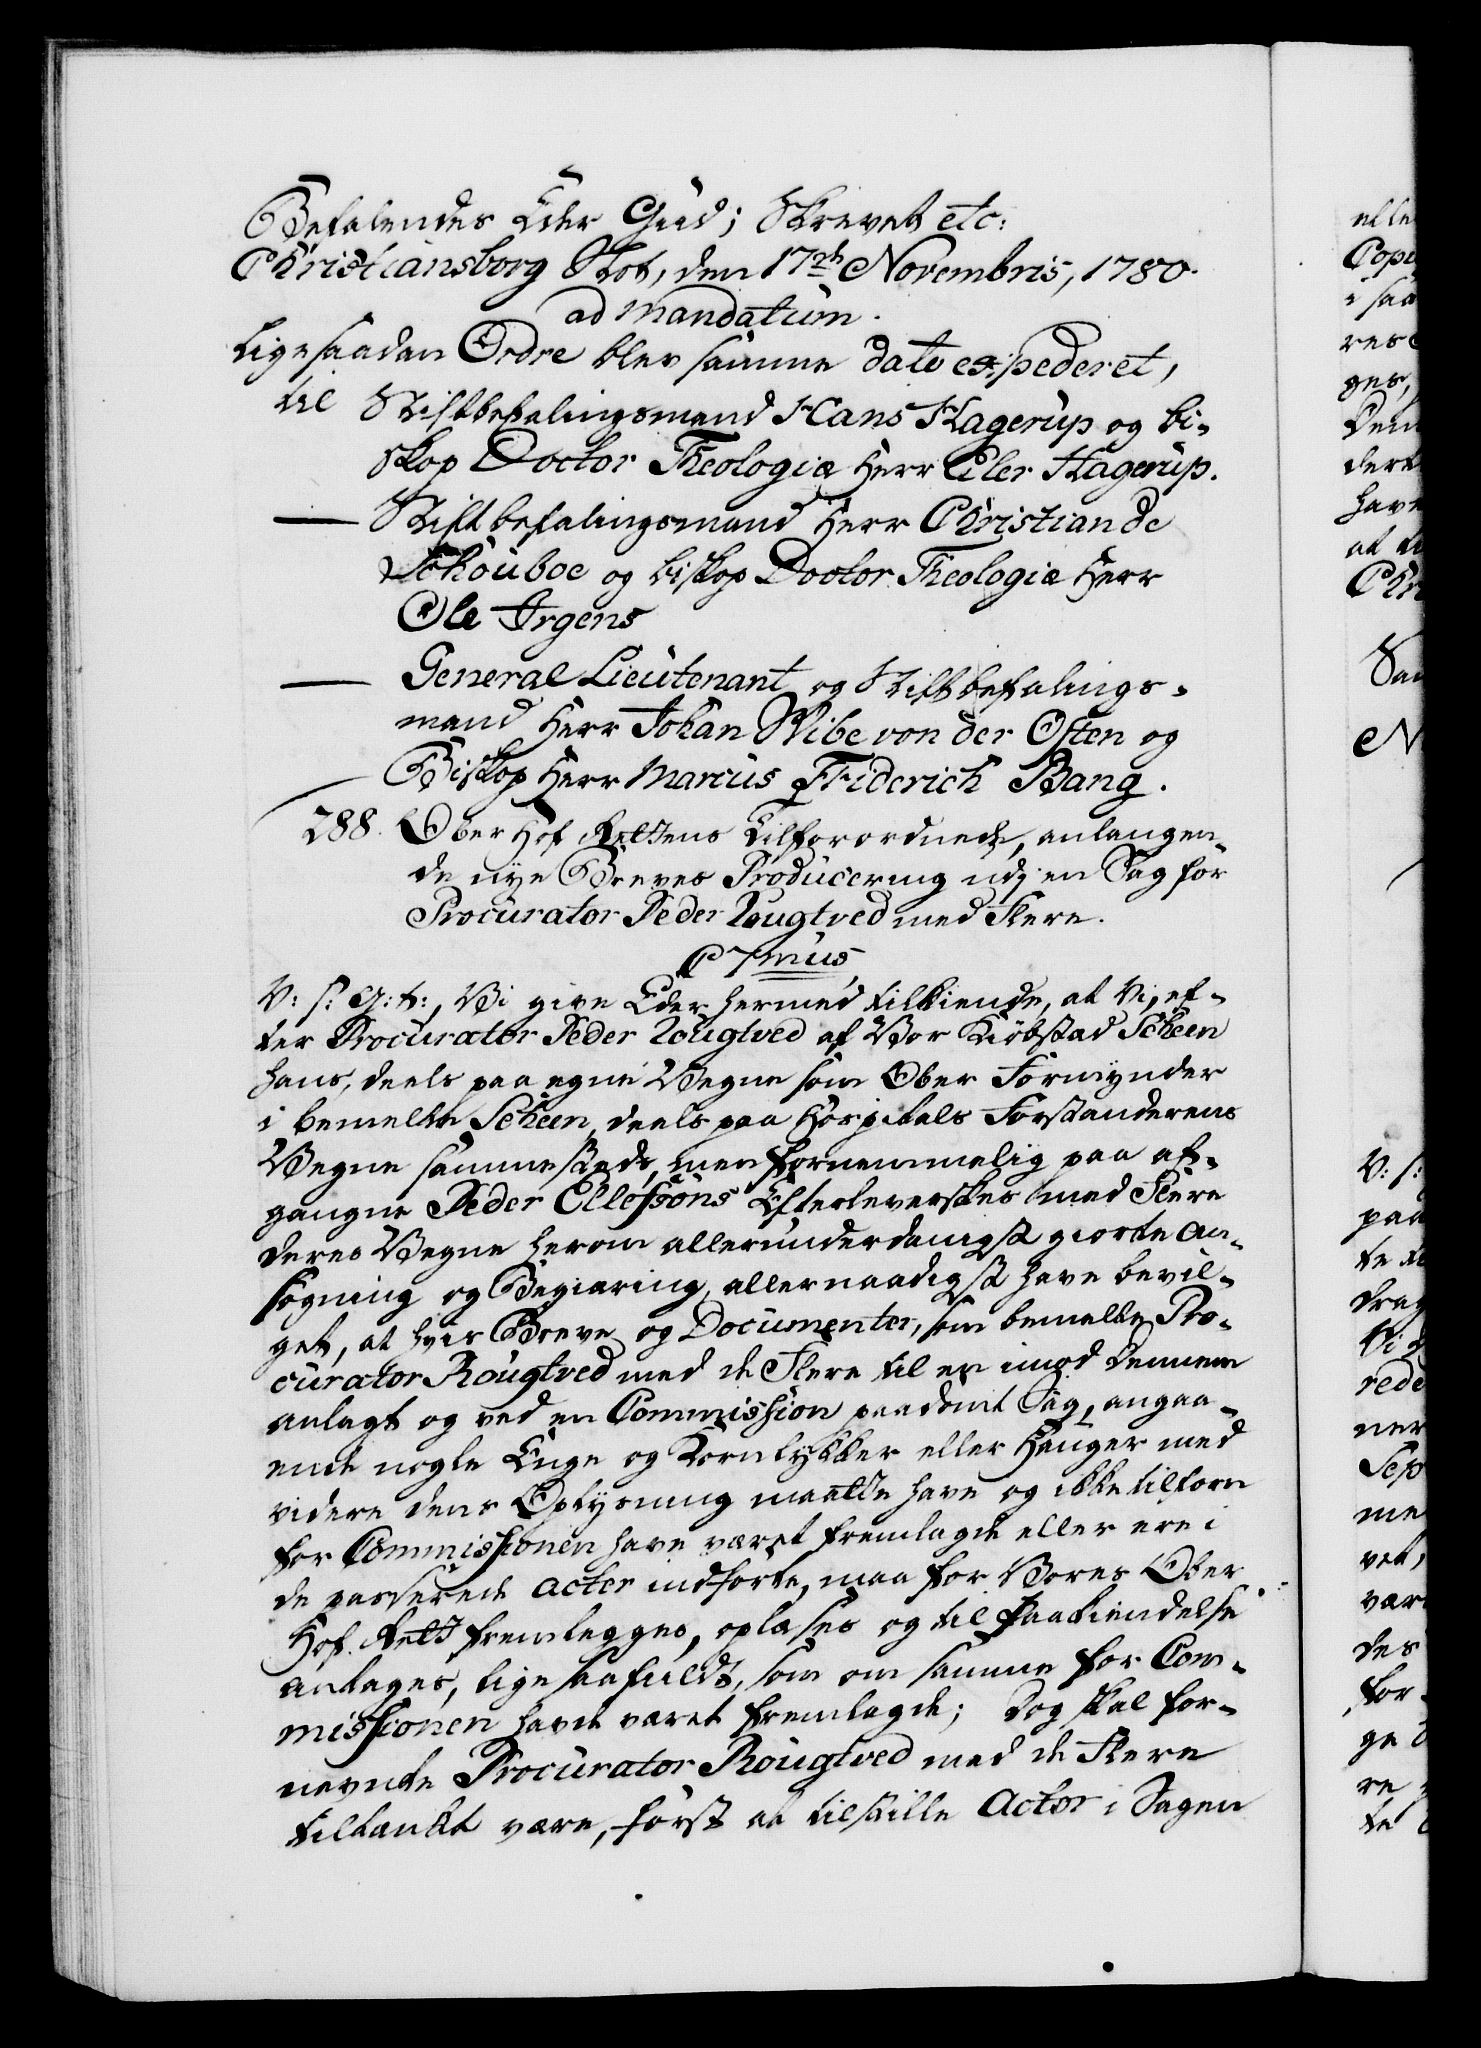 Befalendes Eder Gud; Skrevet etc:
Christiansborg Slot, den 17de Novembris, 1780.
ad mandatum.
Lige saadan Ordre blev samme dato expederet,
til Stiftbefalingsmand Hans Hagerup og Bi-
skop Doctor Theologiæ Herr Eiler Hagerup.
— Stiftbefalingsmand Herr Christian de
Schouboe og Biskop Doctor Theologiæ Herr
Ole Irgens
— General Lieutenant og Stiftbefalings-
mand Herr Johan Wibe von der Osten og
Biskop Herr Marcus Friderich Bang.
288. Ober Hof Rettens Tilforordnede, anlangen-
de nye Breves Producering udj en Sag for
Procurator Peder Rougtved med Flere.
C 7mus
V: s: G: t:, Vi give Eder hermed tilkiende, at Vi, ef-
ter Procurator Peder Rougtved af Vor Kiöbstad Scheen
hans, deels paa egne Vegne som Ober Formynder
i bemelte Scheen, deels paa Hospitals Forstanderens
Vegne sammesteds, men fornemmelig paa af-
gangne Peder Ellefsöns Efterleverskes med Flere
deres Vegne herom allerunderdanigst giorte An-
søgning og Begiæring, allernaadigst have bevil-
get, at hvis Breve og Documenter, som bemelte Pro-
curator Rougtved med de Flere til en imod dennem
anlagt og ved en Commission paadömt Sag, angaa-
ende nogle Enge og Kornlykker eller Hauger med
videre dens Oplysning maatte have og ikke tilforn
for Commissionen have været fremlagde eller ere i
de passerede Acter indførte, maa for Vores Ober
Hof Rett fremlegges, oplæses og til Paakiendelse
antages, lige saa fuldt, som om samme for Com-
missionen havde været fremlagde; Dog skal for-
nevnte Procurator Rougtved med de Flere
tiltænkt være, först at tilstille Actor i Sagen